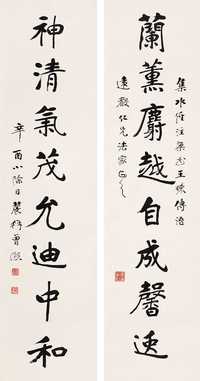 蘭薰麝越自成馨逸
集水經注梁書王暕傳語
遠毅仁兄法家正之
神清氣茂允迪中和
辛酉小除日農髯曾熙